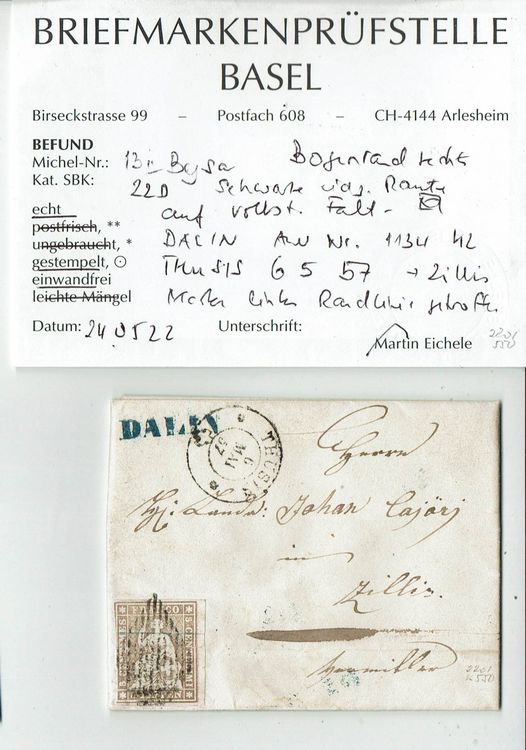 BRIEFMARKENPRÜFSTELLE
BASEL
Birseckstrasse 99 – Postfach 608 – CH-4144 Arlesheim
BEFUND
Michel-Nr.: 13 II Bysa Bogenrand rechts
Kat. SBK: 22D schwarze eidg. Raute
echt auf vollst. Falt-
postfrisch, **
ungebraucht, * DALIN AW Nr. 1134 42
gestempelt, ⊙ THUSIS 6 5 57 → Zillis
einwandfrei
leichte Mängel Marke links Randlinie getroffen
Datum: 24 05 22 Unterschrift:
Martin Eichele
2201
550
DALIN
THUSIS
6
MAI
57
Herrn
Johan Cajörj
in
Zillis.
FRANCO
5 CENTESIMI
2201
K 550